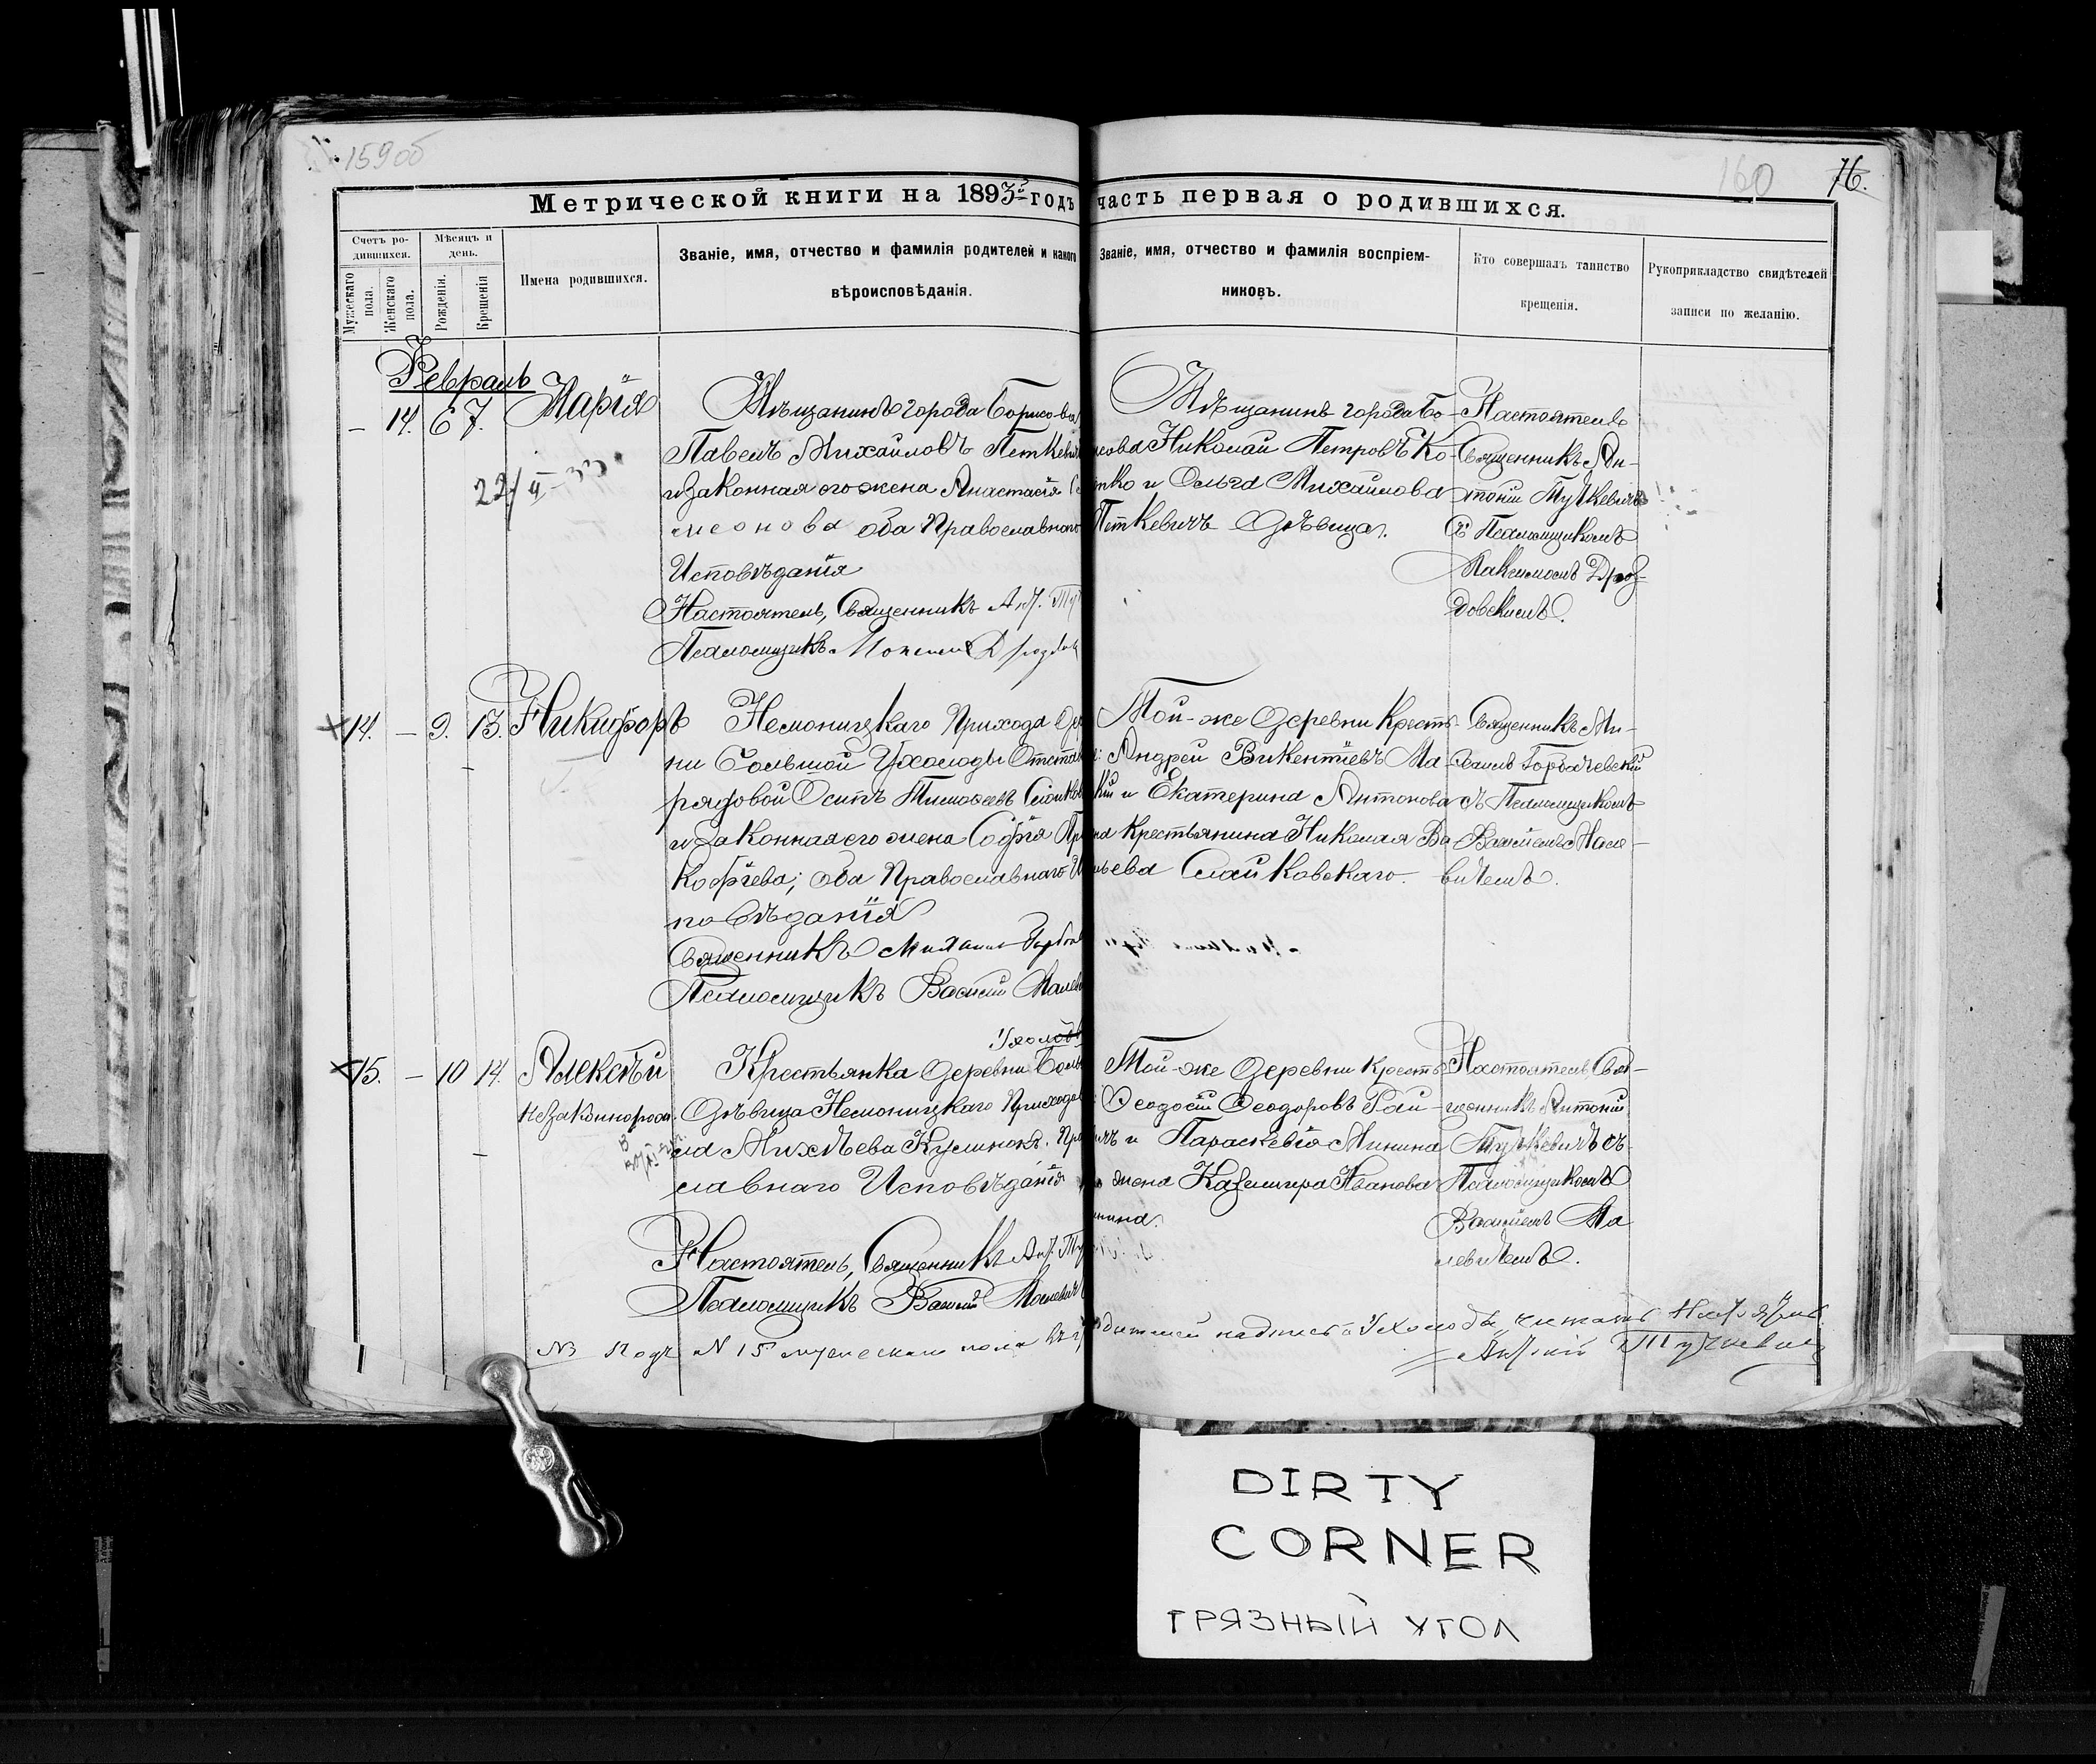 159об
160
76.
Метрической книги на 1893й годъ часть первая о родившихся.
Счетъ родившихся.
Мужескаго пола.
Женскаго пола.
Мѣсяцъ и день.
Рожденія.
Крещенія
Имена родившихся.
Званіе, имя, отчество и фамилія родителей и какого
вѣроисповѣданія.
Званіе, имя, отчество и фамилія воспріем-
никовъ.
Кто совершалъ таинство
крещенія.
Рукоприкладство свидѣтелей
записи по желанію.
Февраль
– 14. 6 7. Марія
Мѣщанинъ города Борисова
Павелъ Михайловъ Петкевич
и законная его жена Анастасія
меонова оба Православнаго
Исповѣданія
Настоятель, Священникъ Ант.
Псаломщикъ
Мѣщанинъ города Бо-
Николай Петровъ Ко-
тко и Ольга Михайлова
Петкевичъ Дѣвица.
Настоятель
Священникъ Ан-
тоній Тучкевичъ
съ Псаломщикомъ
Максимомъ Дроз-
довскимъ.
14. – 9. 13. Никифоръ
Немоницкаго Прихода Дер
ни Большой Ухолоды Отстав
рядовой Осипъ Тимоѳеевъ
и законная его жена Софія Пр
кофіева; оба Православнаго И
повѣданія
Священникъ Михаилъ
Псаломщикъ Василій
Той-же Деревни Кресть-
Андрей Викентіевъ Ма-
кій и Екатерина Антонова
на Крестьянина Николая Ва
льева Слайковскаго.
Священникъ Ми-
хаилъ Горбачевскій
съ Псаломщикомъ
Василіемъ Мале-
вичемъ.
15. – 10 14. Алексѣй
Незаконнорож
Ухолоды
Крестьянка Деревни Боль
Дѣвица Немоницкаго Прихода
ла Михѣева Пра
славнаго Исповѣданія
Настоятель, Священникъ Ант. Ту
Псаломщикъ Василій Малевич
Той-же Деревни Кресть
Ѳеодосій Ѳеодоровъ Рай-
ичъ и Параскевія Минина
жена Казимира Иванова
Настоятель Свя-
щенникъ Антоній
Тучкевичъ съ
Псаломщикомъ
Василіемъ Ма
левичемъ.
NB Подъ N 15 мужескаго пола
надпись „Ухолоды„ читать Настоятель
Антоній Тучкевичъ
DIRTY
CORNER
ГРЯЗНЫЙ УГОЛ